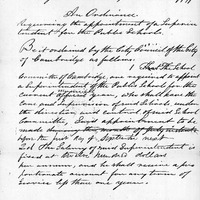 An Ordinance
Requiring the appointment of a Superin
tendent for the Public Schools.
Be it ordained by the City Council of the City
of Cambridge as follows:
1 That the School
Committee of Cambridge, are required to appoint
a Superintendent of the Public Schools for the
current year, who shall have the
care and supervision of said Schools, under
the direction and control of said School
Committee, said appointment to be
made
before the first day of September next
2d. The Salary of said Superintendent is
fixed at hundred dollars
per annum, and he shall receive a pro
portionate amount for any term of
service less than one year.